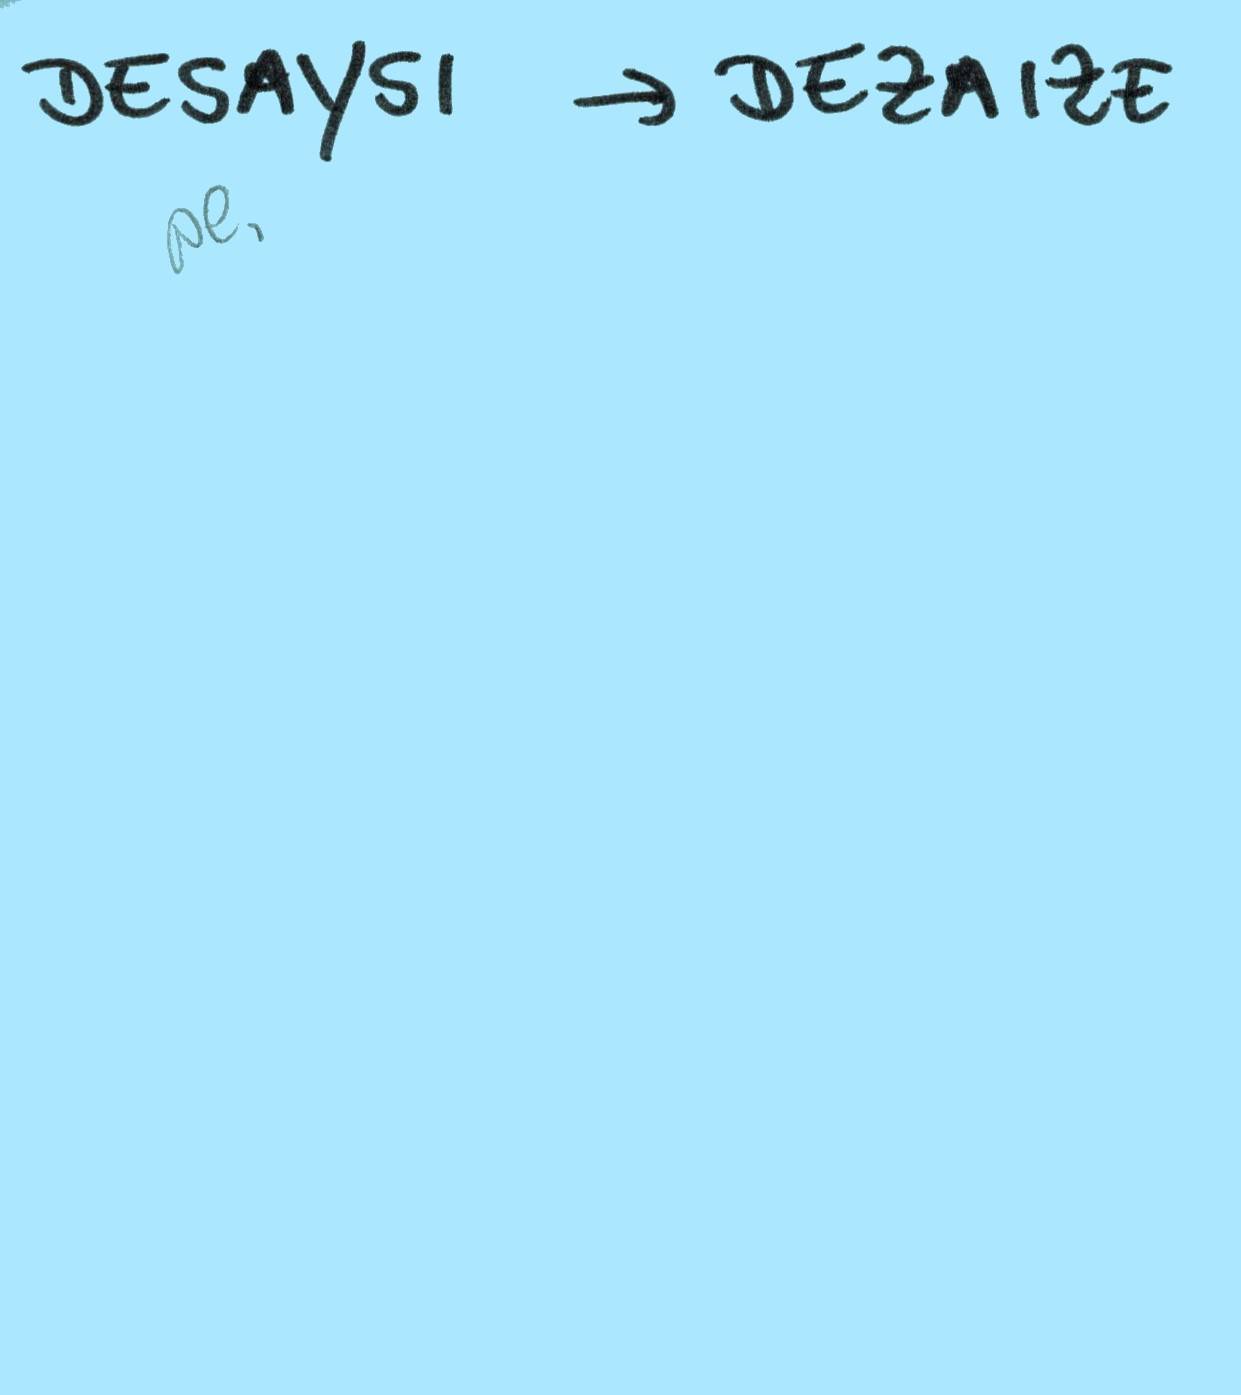 DESAYSI → DEZAIZE